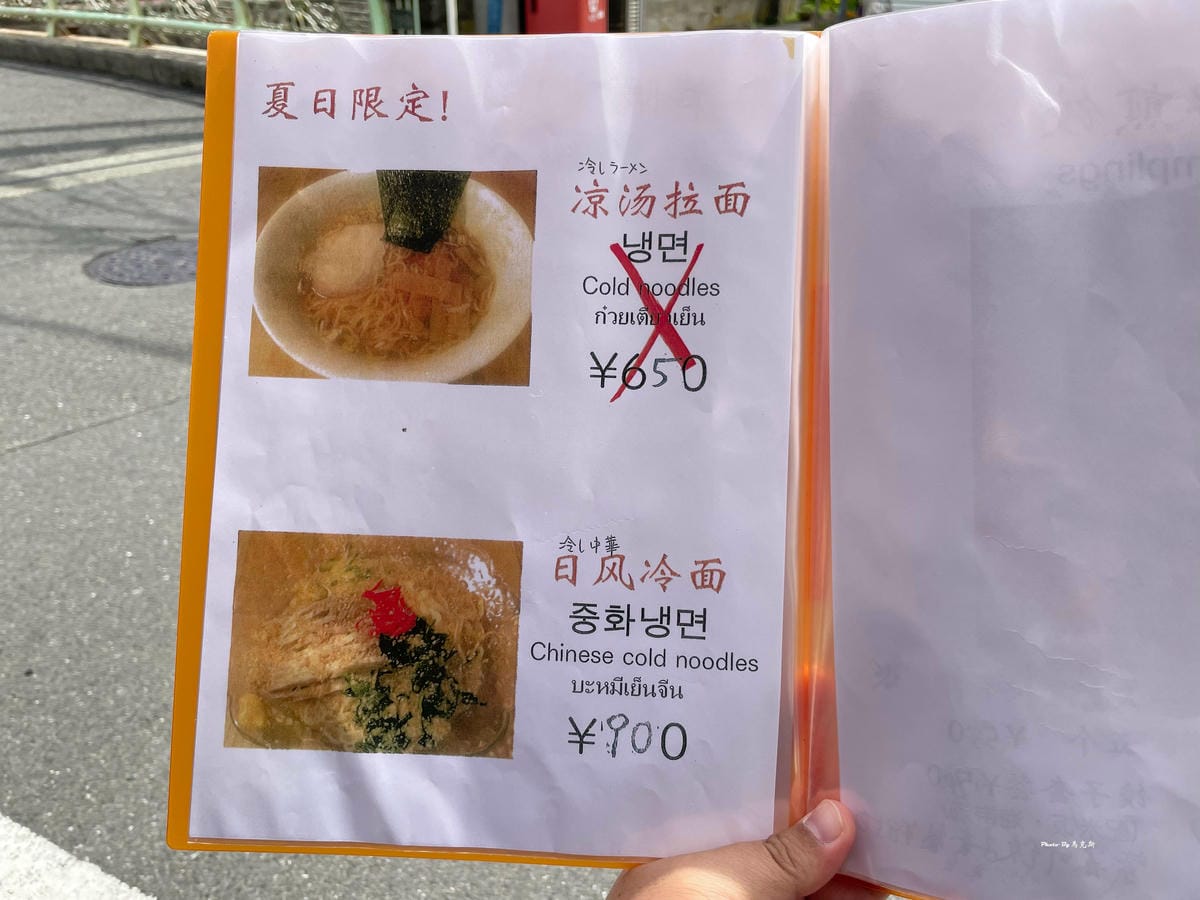 夏日限定!
冷しラーメン
凉汤拉面
냉면
Cold noodles
ก๋วยเตี๋ยวเย็น
¥650
冷し中華
日风冷面
중화냉면
Chinese cold noodles
บะหมี่เย็นจีน
¥900
Photo By 馬克斯